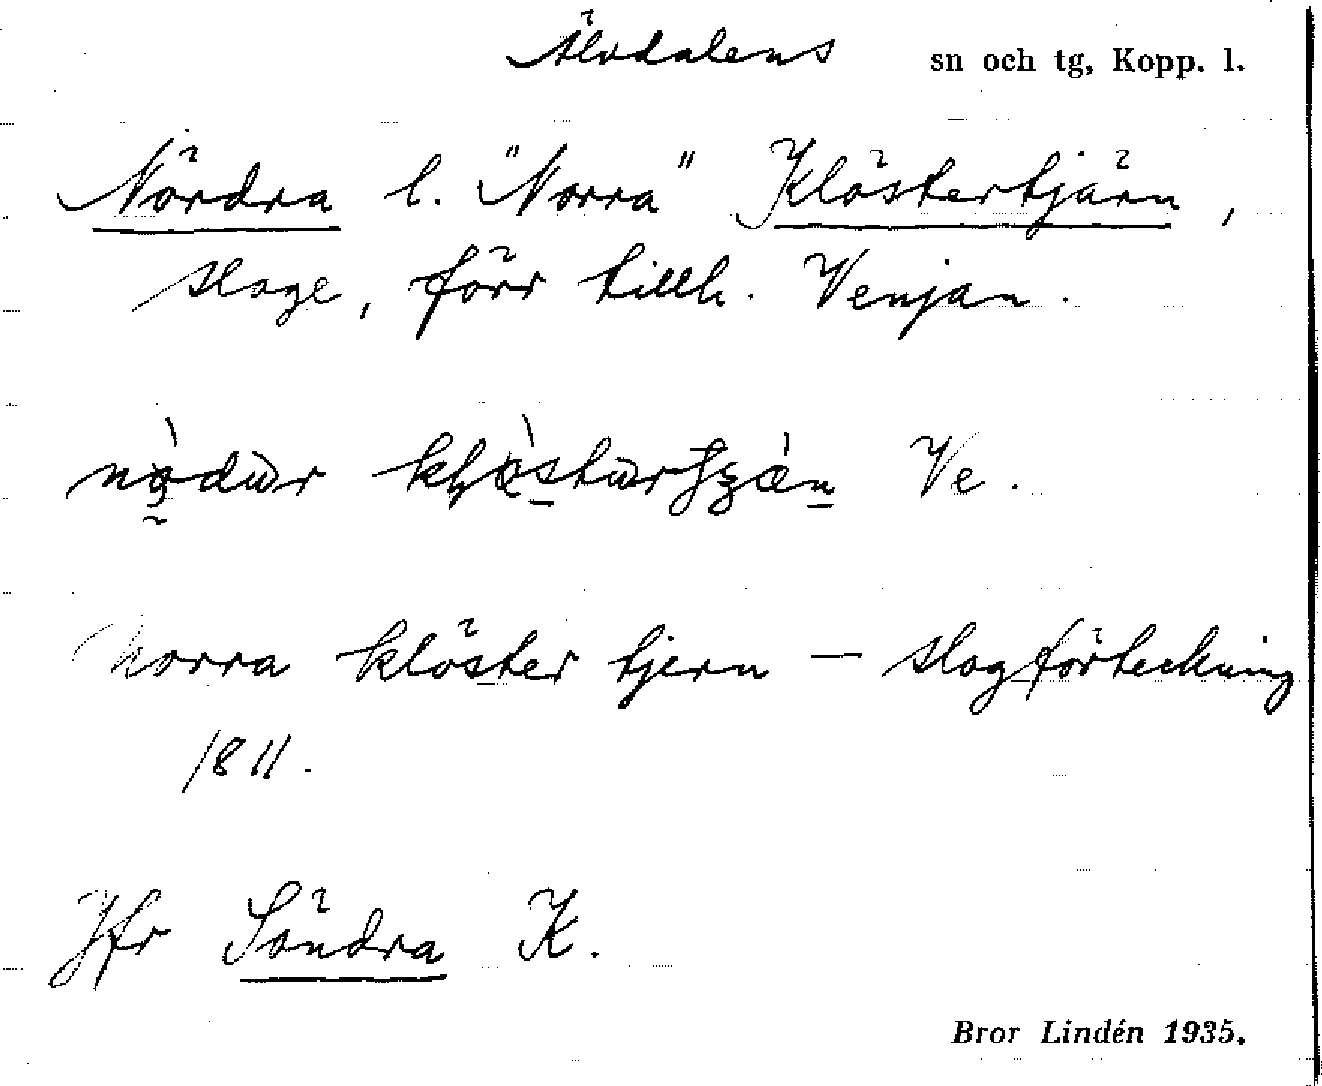 Älvdalens sn och tg, Kopp. l.
Nördra l. "Norra" Klöstertjärn,
sloge, förr tillh. Venjan.
Ve.
Norra klöster tjern — slogförteckning
1811.
Jfr Söndra K.
Bror Lindén 1935.